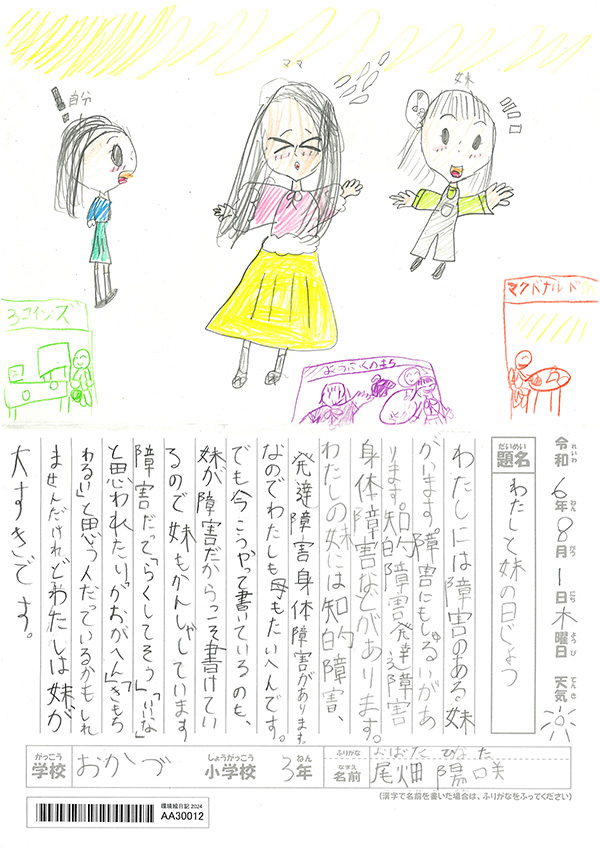 自分
ママ
妹
3コインズ
ようふくのまち
マクドナルド
令和6年8月1日木曜日 天気
れいわ ねん がつ にち ようび てんき
だいめい
題名
わたしと妹の日じょう
わたしには障害のある妹
がいます。障害にもしゅるいがあ
ります。知的障害発達障害
身体障害などがあります。
わたしの妹には知的障害、
発達障害身体障害があります。
なのでわたしも母もたいへんです。
でも今こうやって書いているのも、
妹が障害だからっこそ書けてい
るので妹もかんしゃしています
障害だって「らくしてそう」「いいな」
と思われたり「かおがへん」「きもち
わるい」と思う人だっているかもしれ
ませんだけれどわたしは妹が
大すきです。
がっこう
学校
おかづ
しょうがっこう
小学校
ねん
3年
ふりがな
おばた ひなた
なまえ
名前
尾畑 陽咲
(漢字で名前を書いた場合は、ふりがなをふってください)
環境絵日記2024
AA30012